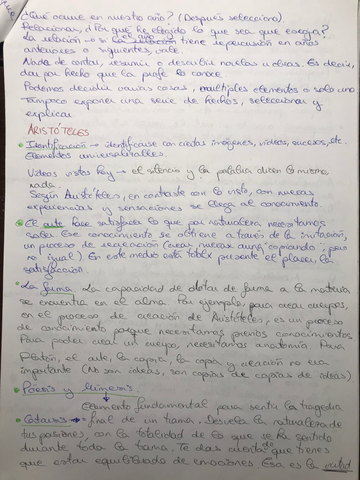 ¿Qué ocurre en nuestro año? (Después selecciono)
Relacionar, ¿Por qué he elegido lo que sea que escoja?
La relación → si la relación tiene repercusión en años
anteriores o siguientes, vale.
Nada de contar, resumir o describir novelas u obras. Es decir,
dar por hecho que la profe lo conoce
Podemos decidir varias cosas, múltiples elementos o solo uno
Tampoco exponer una serie de hechos, seleccionar y
explicar
ARISTÓTELES
Identificación → identificarse con ciertas imágenes, vídeos, sucesos, etc.
Elementos universalizables.
Vídeos vistos hoy → el silencio y la palabra dicen lo mismo,
nada.
Según Aristóteles, en contraste con lo visto, con nuevas
experiencias y sensaciones se llega al conocimiento.
El arte hace satisfacer lo que por naturaleza necesitamos
saber. Ese conocimiento se obtiene a través de la imitación,
un proceso de recreación (crear nuevo aunq "copiando", pero
no igual) En este medio está tabla presente el placer, la
satisfacción.
La forma. La capacidad de dotar de forma a la materia
se encuentra en el alma. Por ejemplo, para crear cuerpos,
en el proceso de creación de Aristóteles, es un proceso
de conocimiento porque necesitamos previos conocimientos
Para poder crear un cuerpo, necesitamos anatomía. Para
Platón, el arte, la copia, la copia y creación no era
importante (No son ideas, son copias de copias de ideas)
Poiesis y mímesis
Elemento fundamental para sentir la tragedia
Catarsis → final de un trama, desvela la naturaleza de
tus pasiones, con la totalidad de lo que se ha sentido
durante toda la trama. Te das cuenta de que tienes
que estar equilibrado de emociones. Esa es la virtud